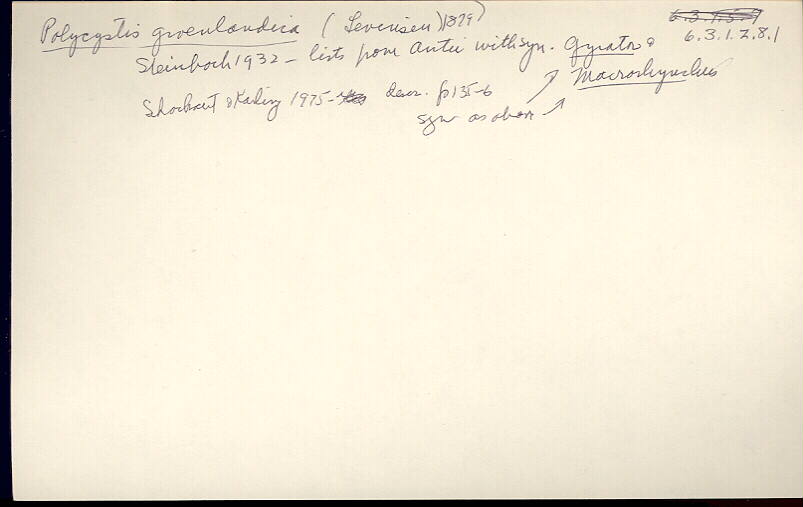 Polycystis groenlandica (Levensen) 1879)
6.3.1.2.8.1
Steinboch 1932 - lists from Antii with syn. Gyrator &
Macrorhynchus
Shockaert & Karling 1975 - descr. p 135-6
syn as above